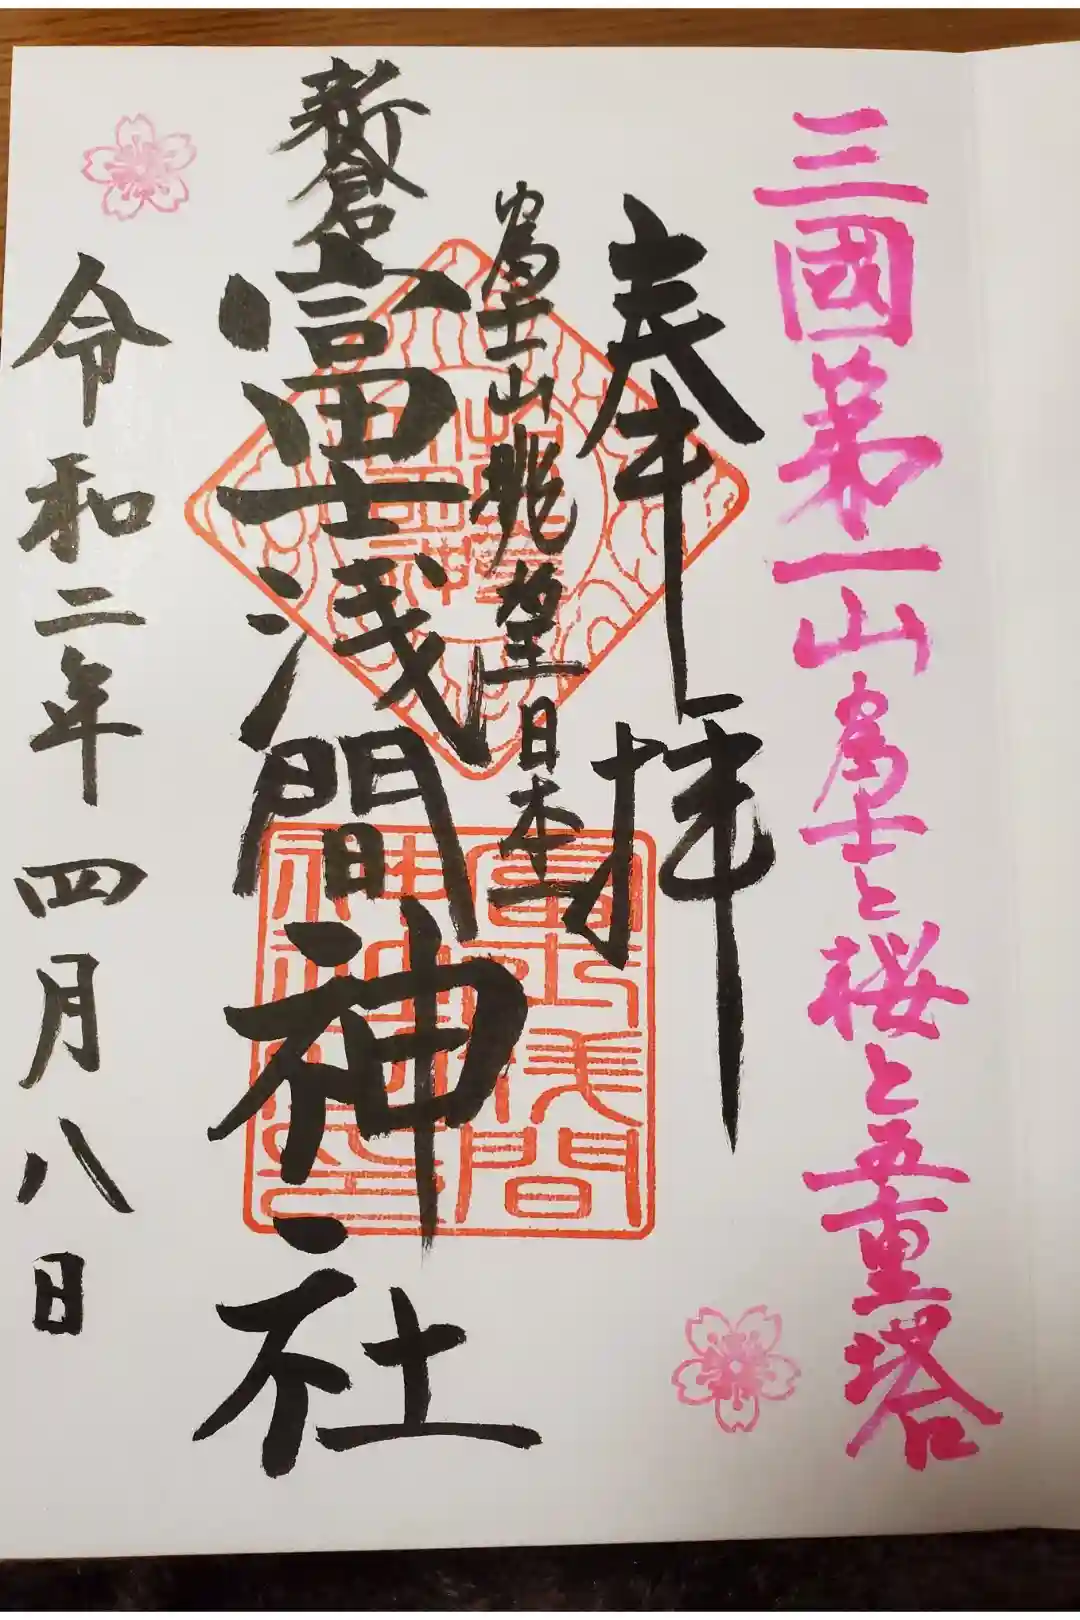 三國第一山富士と桜と五重塔
奉拝
富士山眺望日本一
新倉富士浅間神社
令和二年四月八日